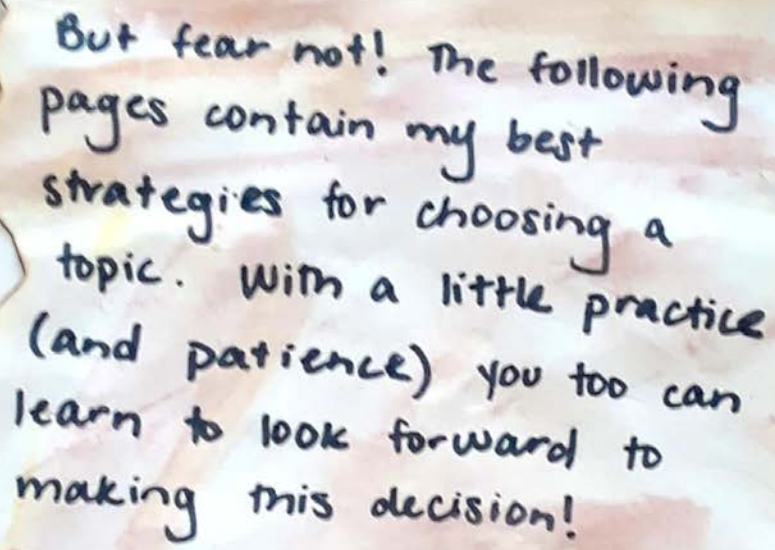 But fear not! The following
pages contain my best
strategies for choosing a
topic. With a little practice
(and patience) you too can
learn to look forward to
making this decision!